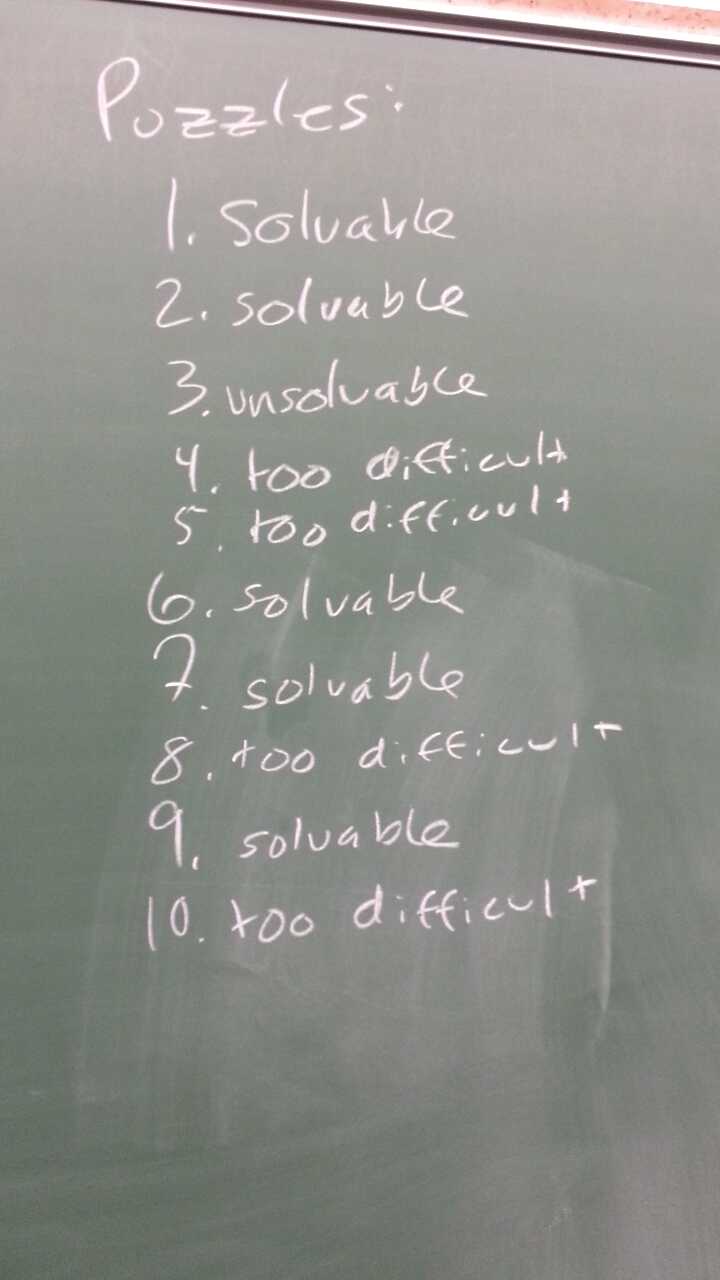 Puzzles:
1. solvable
2. solvable
3. unsolvable
4. too difficult
5. too difficult
6. solvable
7. solvable
8. too difficult
9. solvable
10. too difficult